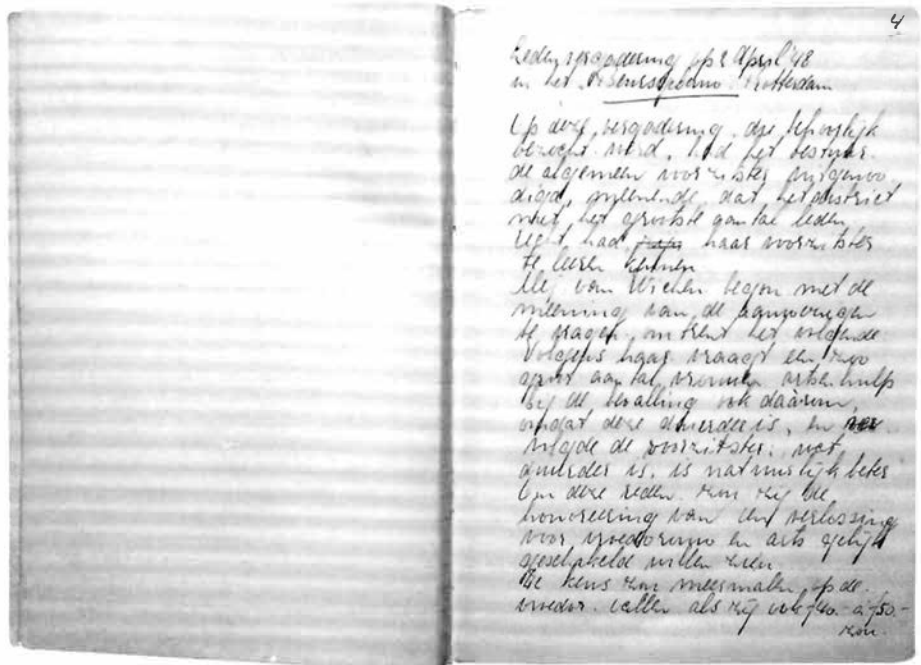 4
Ledenvergadering op 2 April '48
in het Rotterdam
Op deze vergadering, die behoorlijk
bezocht werd, had het bestuur
de algemeen voorzitster uitgenoo
digd, meenende, dat het district
met het grootste aantal leden
recht had haar voorzitster
te leeren kennen
Mej van Wichen begon met de
meening van de aanwezigen
te vragen omtrent het volgende
Volgens haar vraagt een zoo
groot aantal vrouwen artsenhulp
bij de bevalling ook daárom,
omdat deze duurder is, en ver
volgde de voorzitster: wat
duurder is, is natuurlijk beter
Om deze reden zou zij de
honoreering van een verlossing
voor vroedvrouw en arts gelijk
geschakeld willen zien
De keus zou meermalen op de
vroedvr. vallen als zij ook f40.- à f50.-
zou.